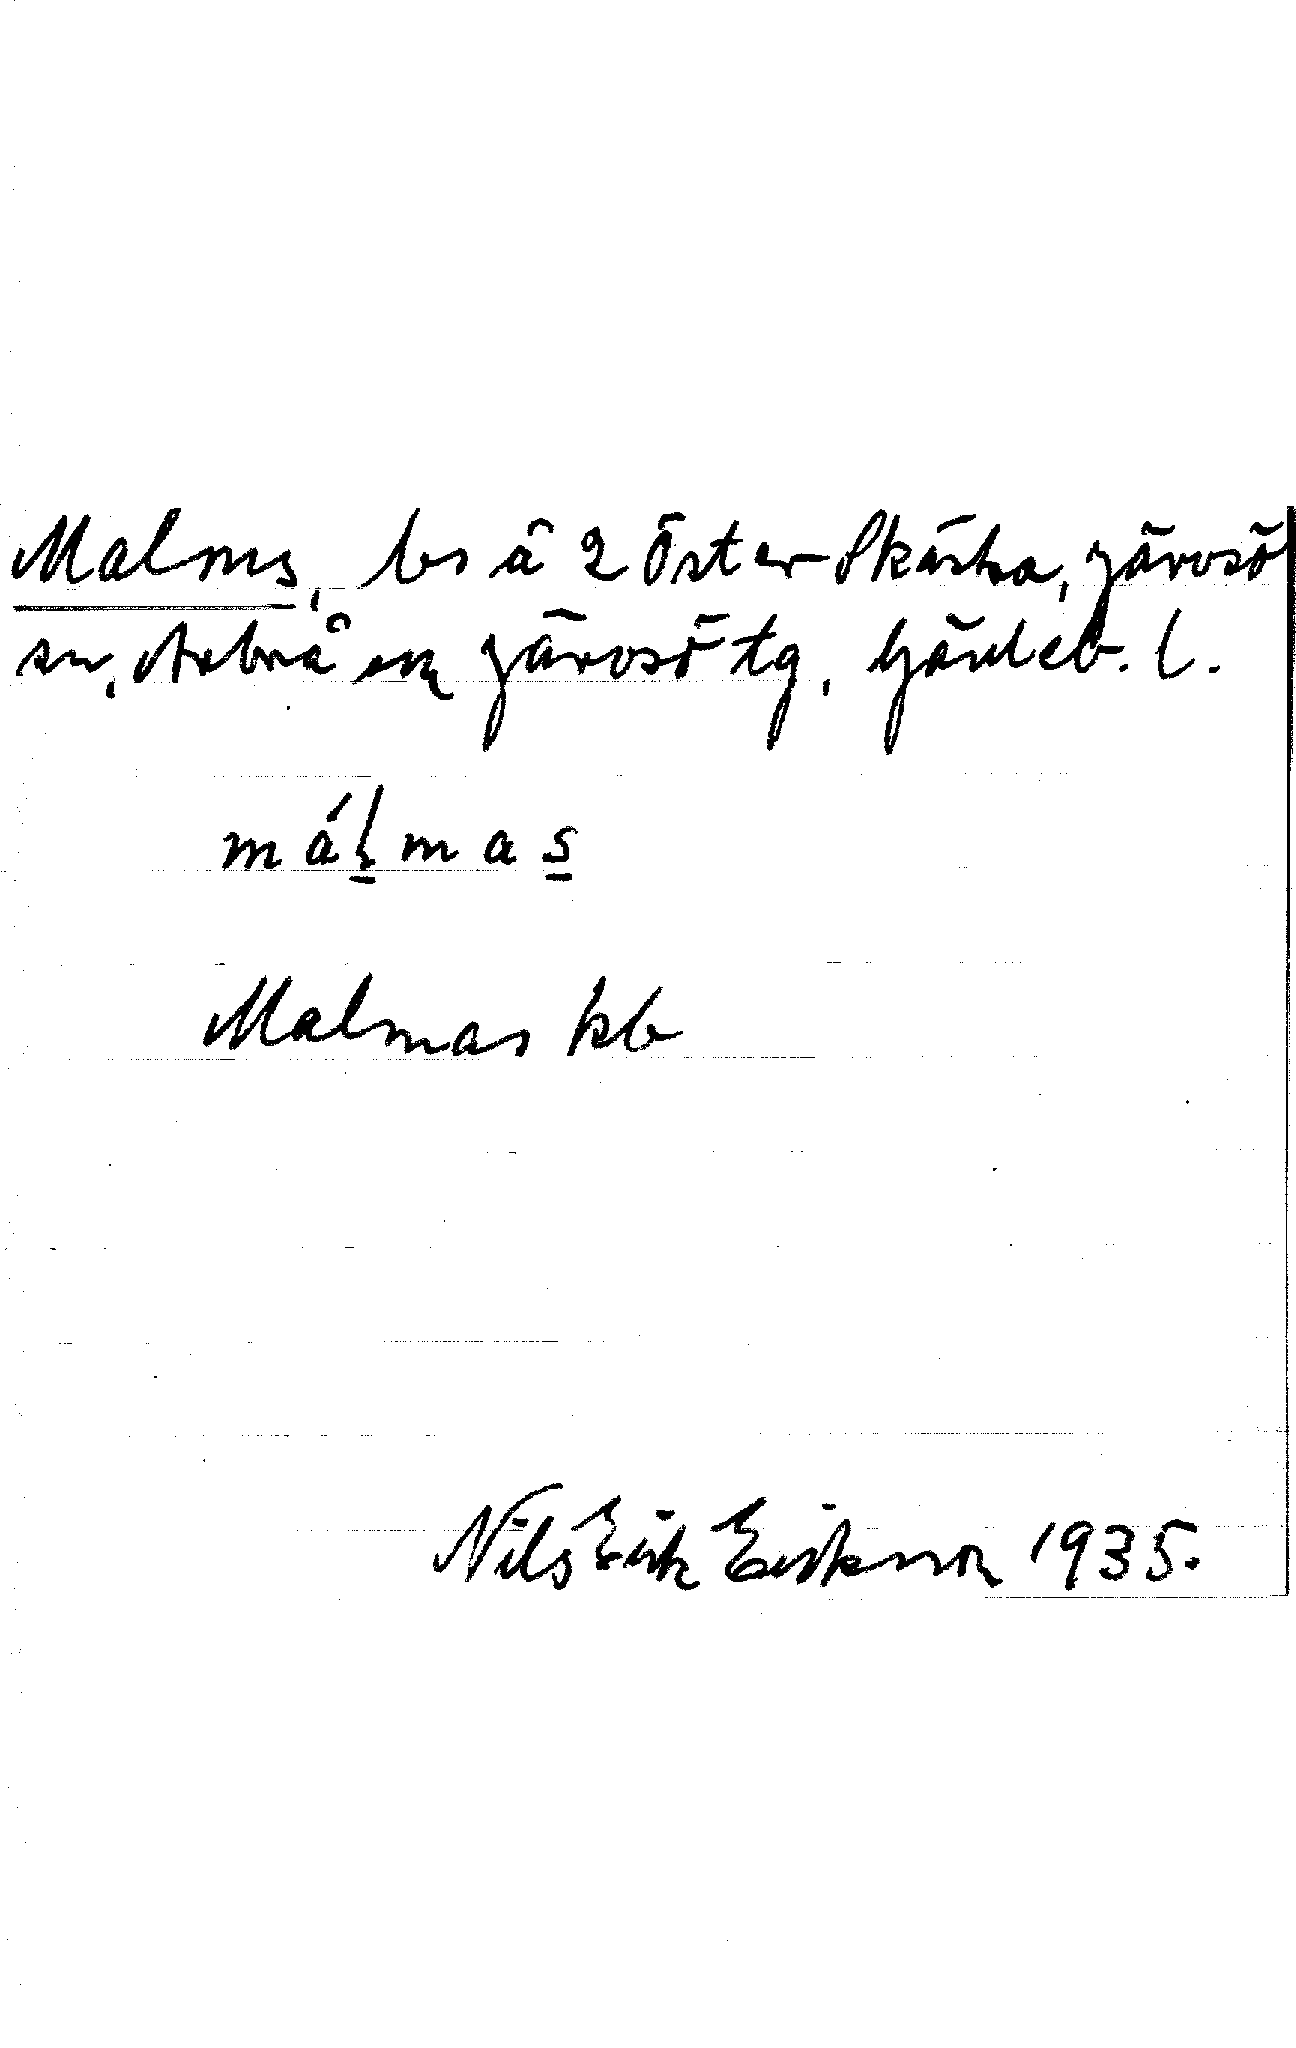 Malms, bs å 2 Öster Skästra, Järvsö
sn, Arbrå en Järvsö tg, Gävleb. l.
máḷmas̲
Malmas kb
Nils Erik Eriksson 1935.